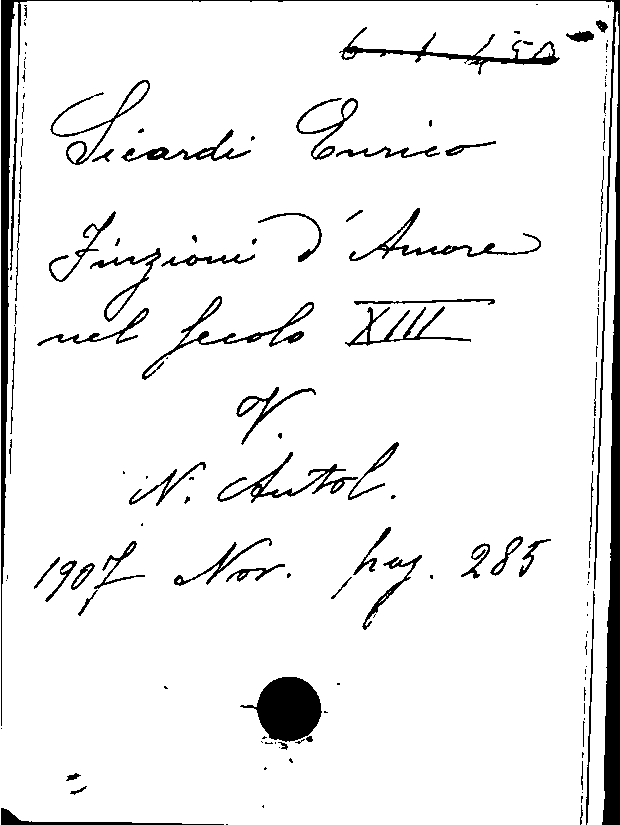 Sicardi Enrico
Finzioni d'Amore
nel secolo XIII
V.
N. Antol.
1907 Nov. pag. 285